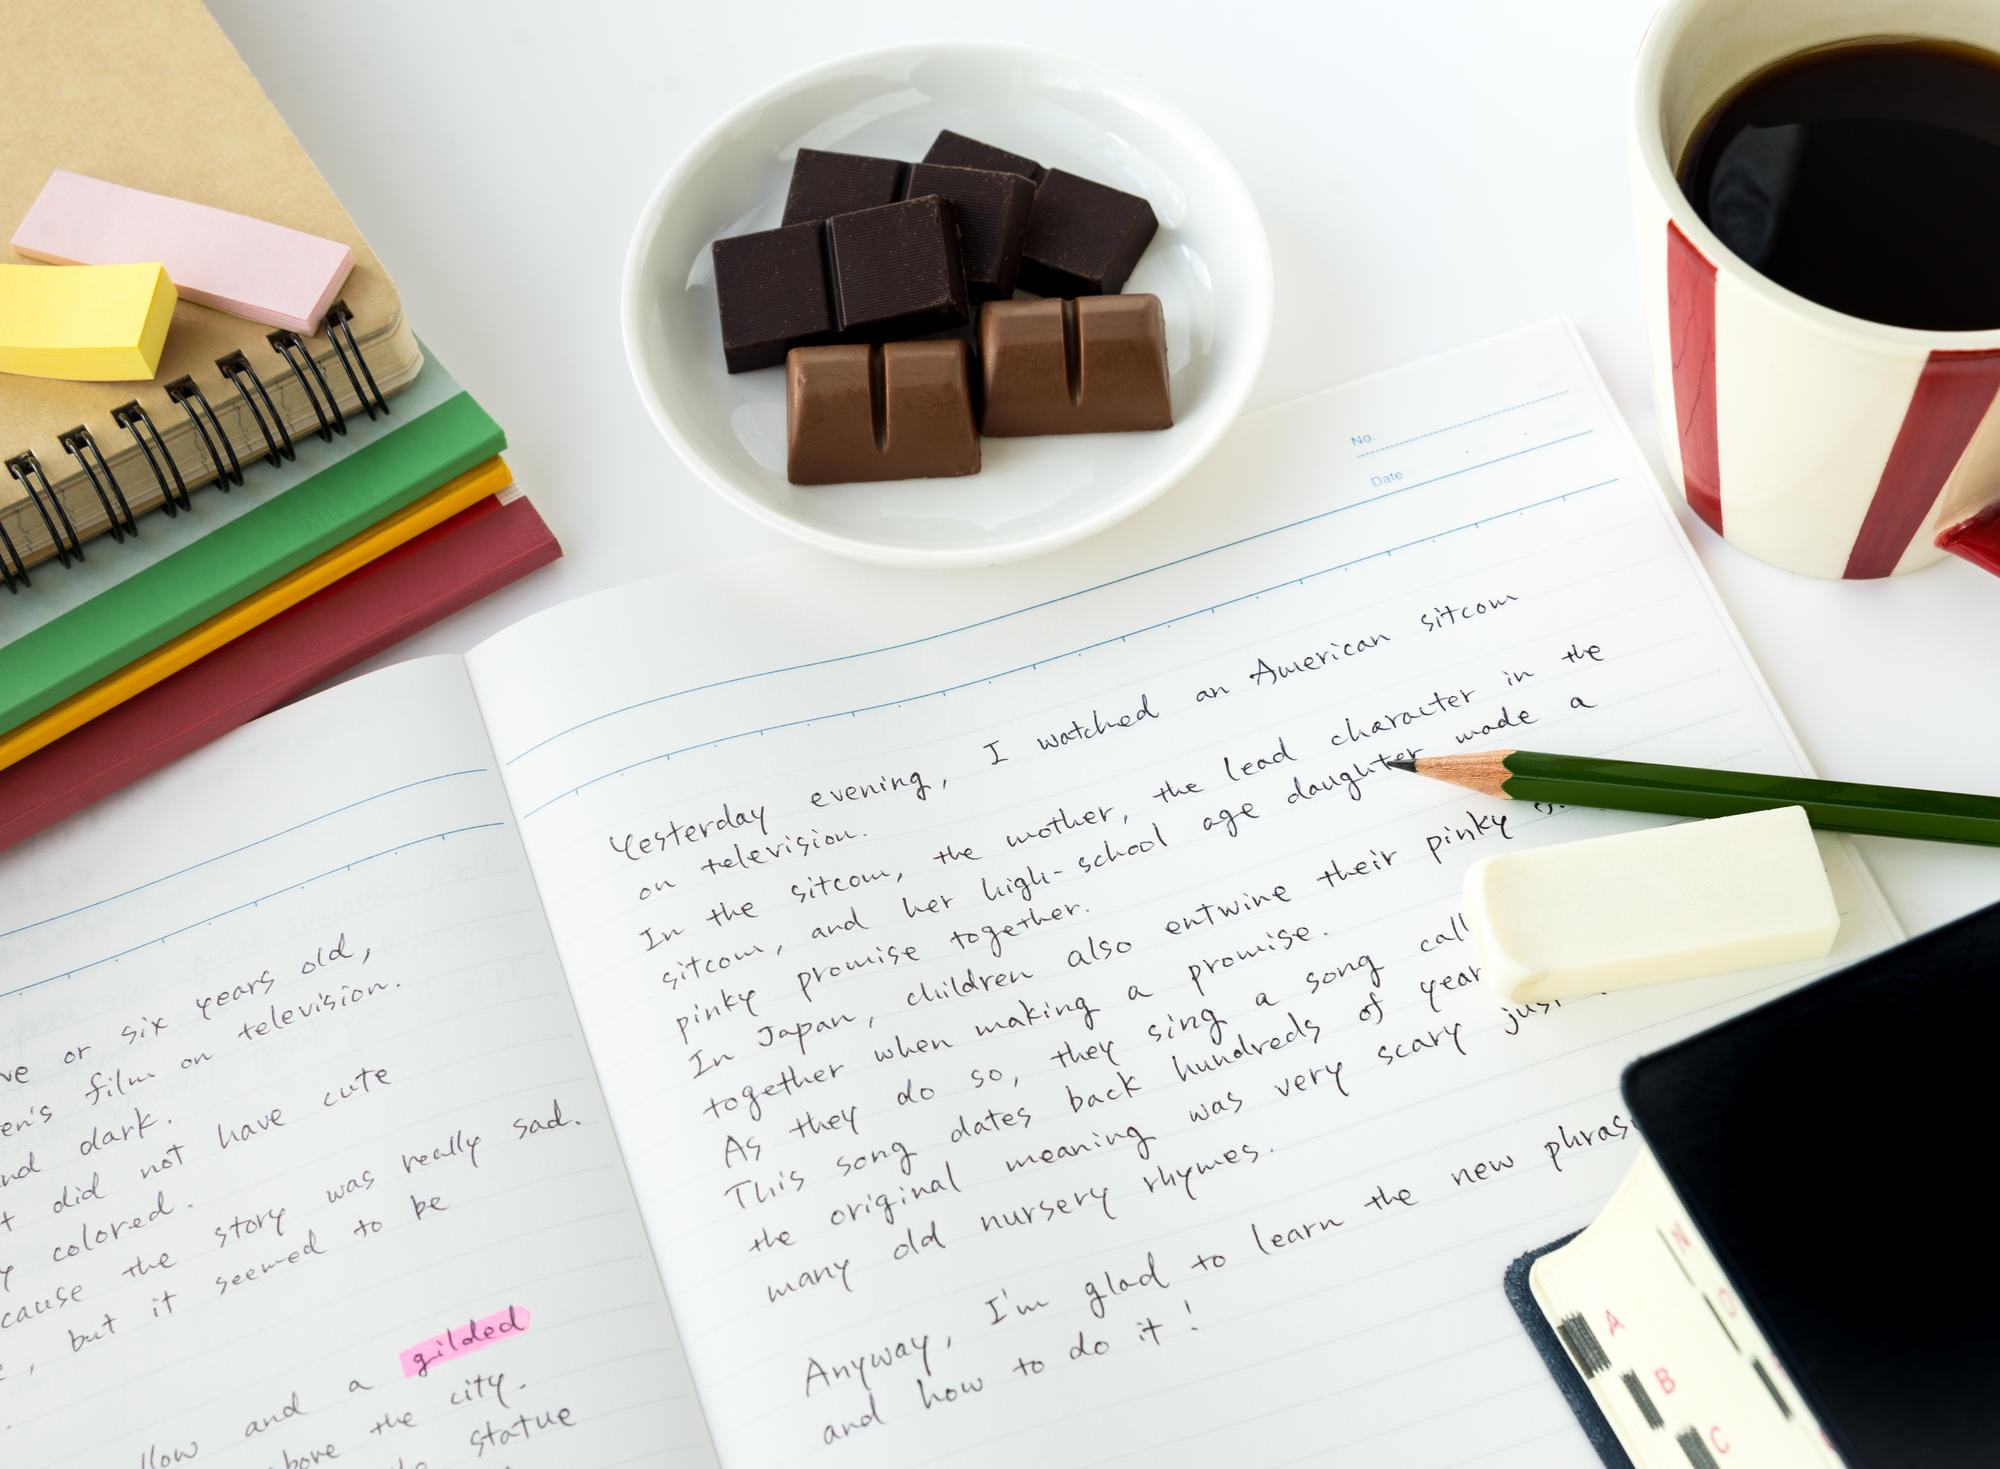 ve or six years old,
en's film on television.
nd dark.
t did not have cute
y colored.
cause the story was really sad.
, but it seemed to be
llow and a gilded
bove the city.
statue
No.
Date
Yesterday evening, I watched an American sitcom
on television.
In the sitcom, the mother, the lead character in the
sitcom, and her high-school age daughter made a
pinky promise together.
In Japan, children also entwine their pinky
together when making a promise.
As they do so, they sing a song call
This song dates back hundreds of year
the original meaning was very scary jus
many old nursery rhymes.
Anyway, I'm glad to learn the new phras
and how to do it!
A
B
C
N
O